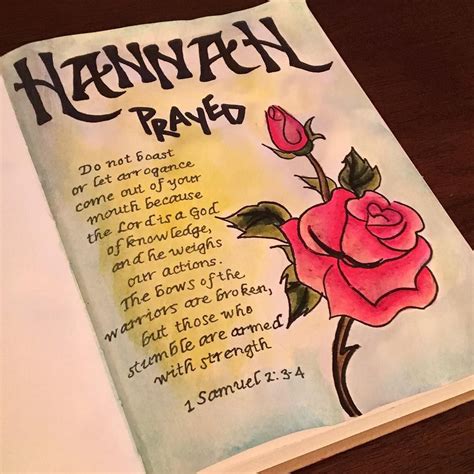 HANNAH
PRAYED
Do not boast
or let arrogance
come out of your
mouth because
the Lord is a God
of knowledge,
and he weighs
our actions.
The bows of the
warriors are broken,
but those who
stumble are armed
with strength
1 Samuel 2:3-4